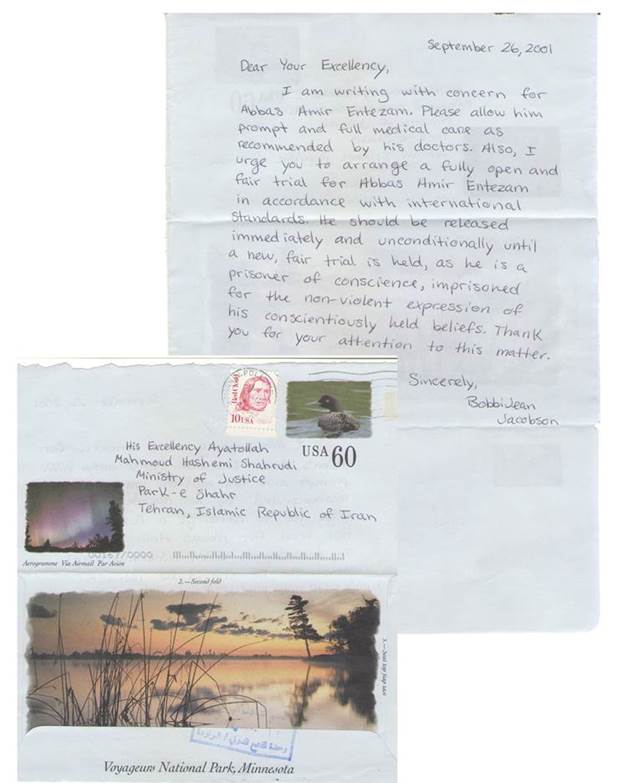 September 26, 2001
Dear Your Excellency,
I am writing with concern for
Abbas Amir Entezam. Please allow him
prompt and full medical care as
recommended by his doctors. Also, I
urge you to arrange a fully open and
fair trial for Abbas Amir Entezam
in accordance with international
standards. He should be released
immediately and unconditionally until
a new, fair trial is held, as he is a
prisoner of conscience, imprisoned
for the non-violent expression of
his conscientiously held beliefs. Thank
you for your attention to this matter.
Sincerely,
BobbiJean
Jacobson
Red Cloud
10¢ USA
USA 60
His Excellency Ayatollah
Mahmoud Hashemi Shahrudi
Ministry of Justice
Park-e Shahr
Tehran, Islamic Republic of Iran
Aerogramme Via Airmail Par Avion
2.—Second fold
Voyageurs National Park, Minnesota